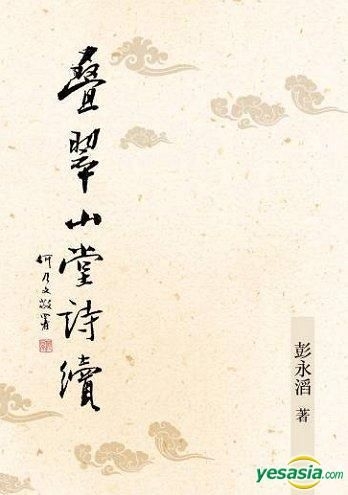 疊翠山堂詩續
何乃文敬署
彭永滔 著
yesasia.com